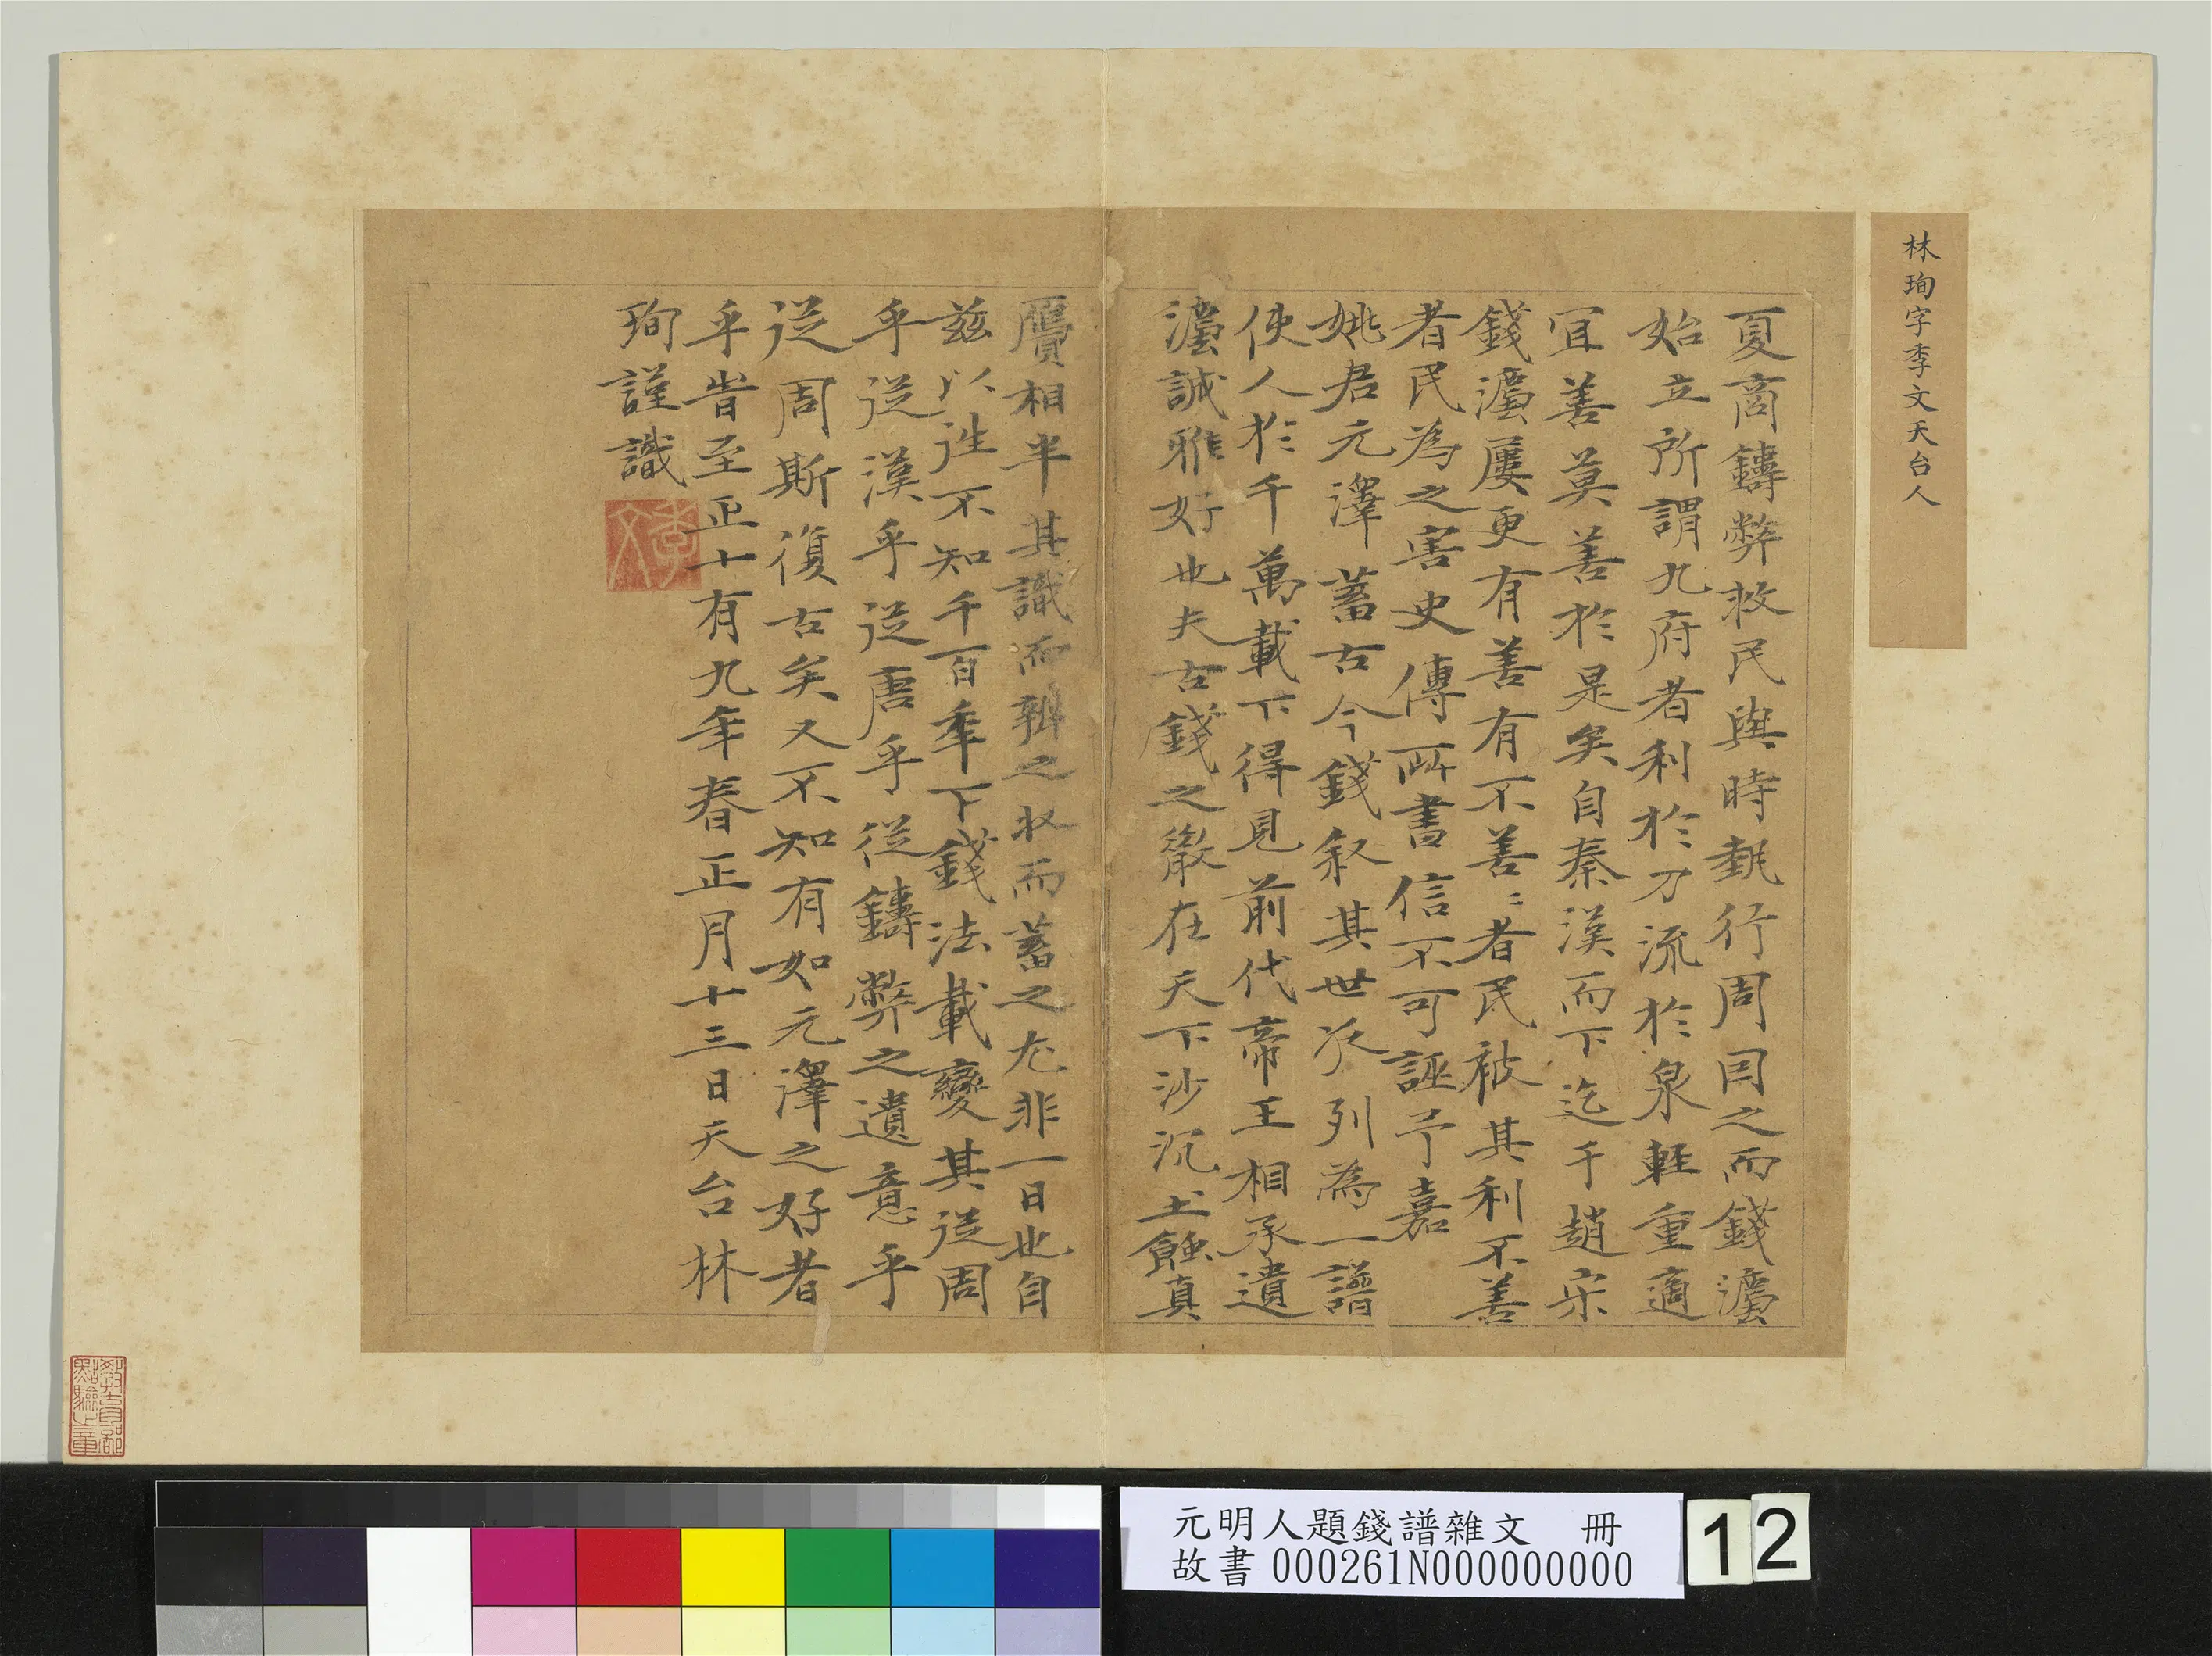 林珣字季文天台人
夏商鑄弊救民與時執行周因之而錢灋
始立所謂九府者利於刀流於泉輕重適
宜善莫善於是矣自秦漢而下迄于趙宋
錢灋屢更有善有不善〻者民被其利不善
者民為之害史傳所書信不可誣予嘉
姚君元澤蓄古今錢叙其世次列為一譜
使人於千萬載下得見前代帝王相承遺
灋誠雅好也夫古錢之散在天下沙沉土蝕真
贗相半其識而辨之收而蓄之尤非一日也自
茲以往不知千百年下錢法載變其從周
乎從漢乎從唐乎從鑄弊之遺意乎
從周斯復古矣又不知有如元澤之好者
乎旹至正十有九年春正月十三日天台林
珣謹識
季文
教育部
點驗之章
元明人題錢譜雜文 冊
故書 000261N000000000
12